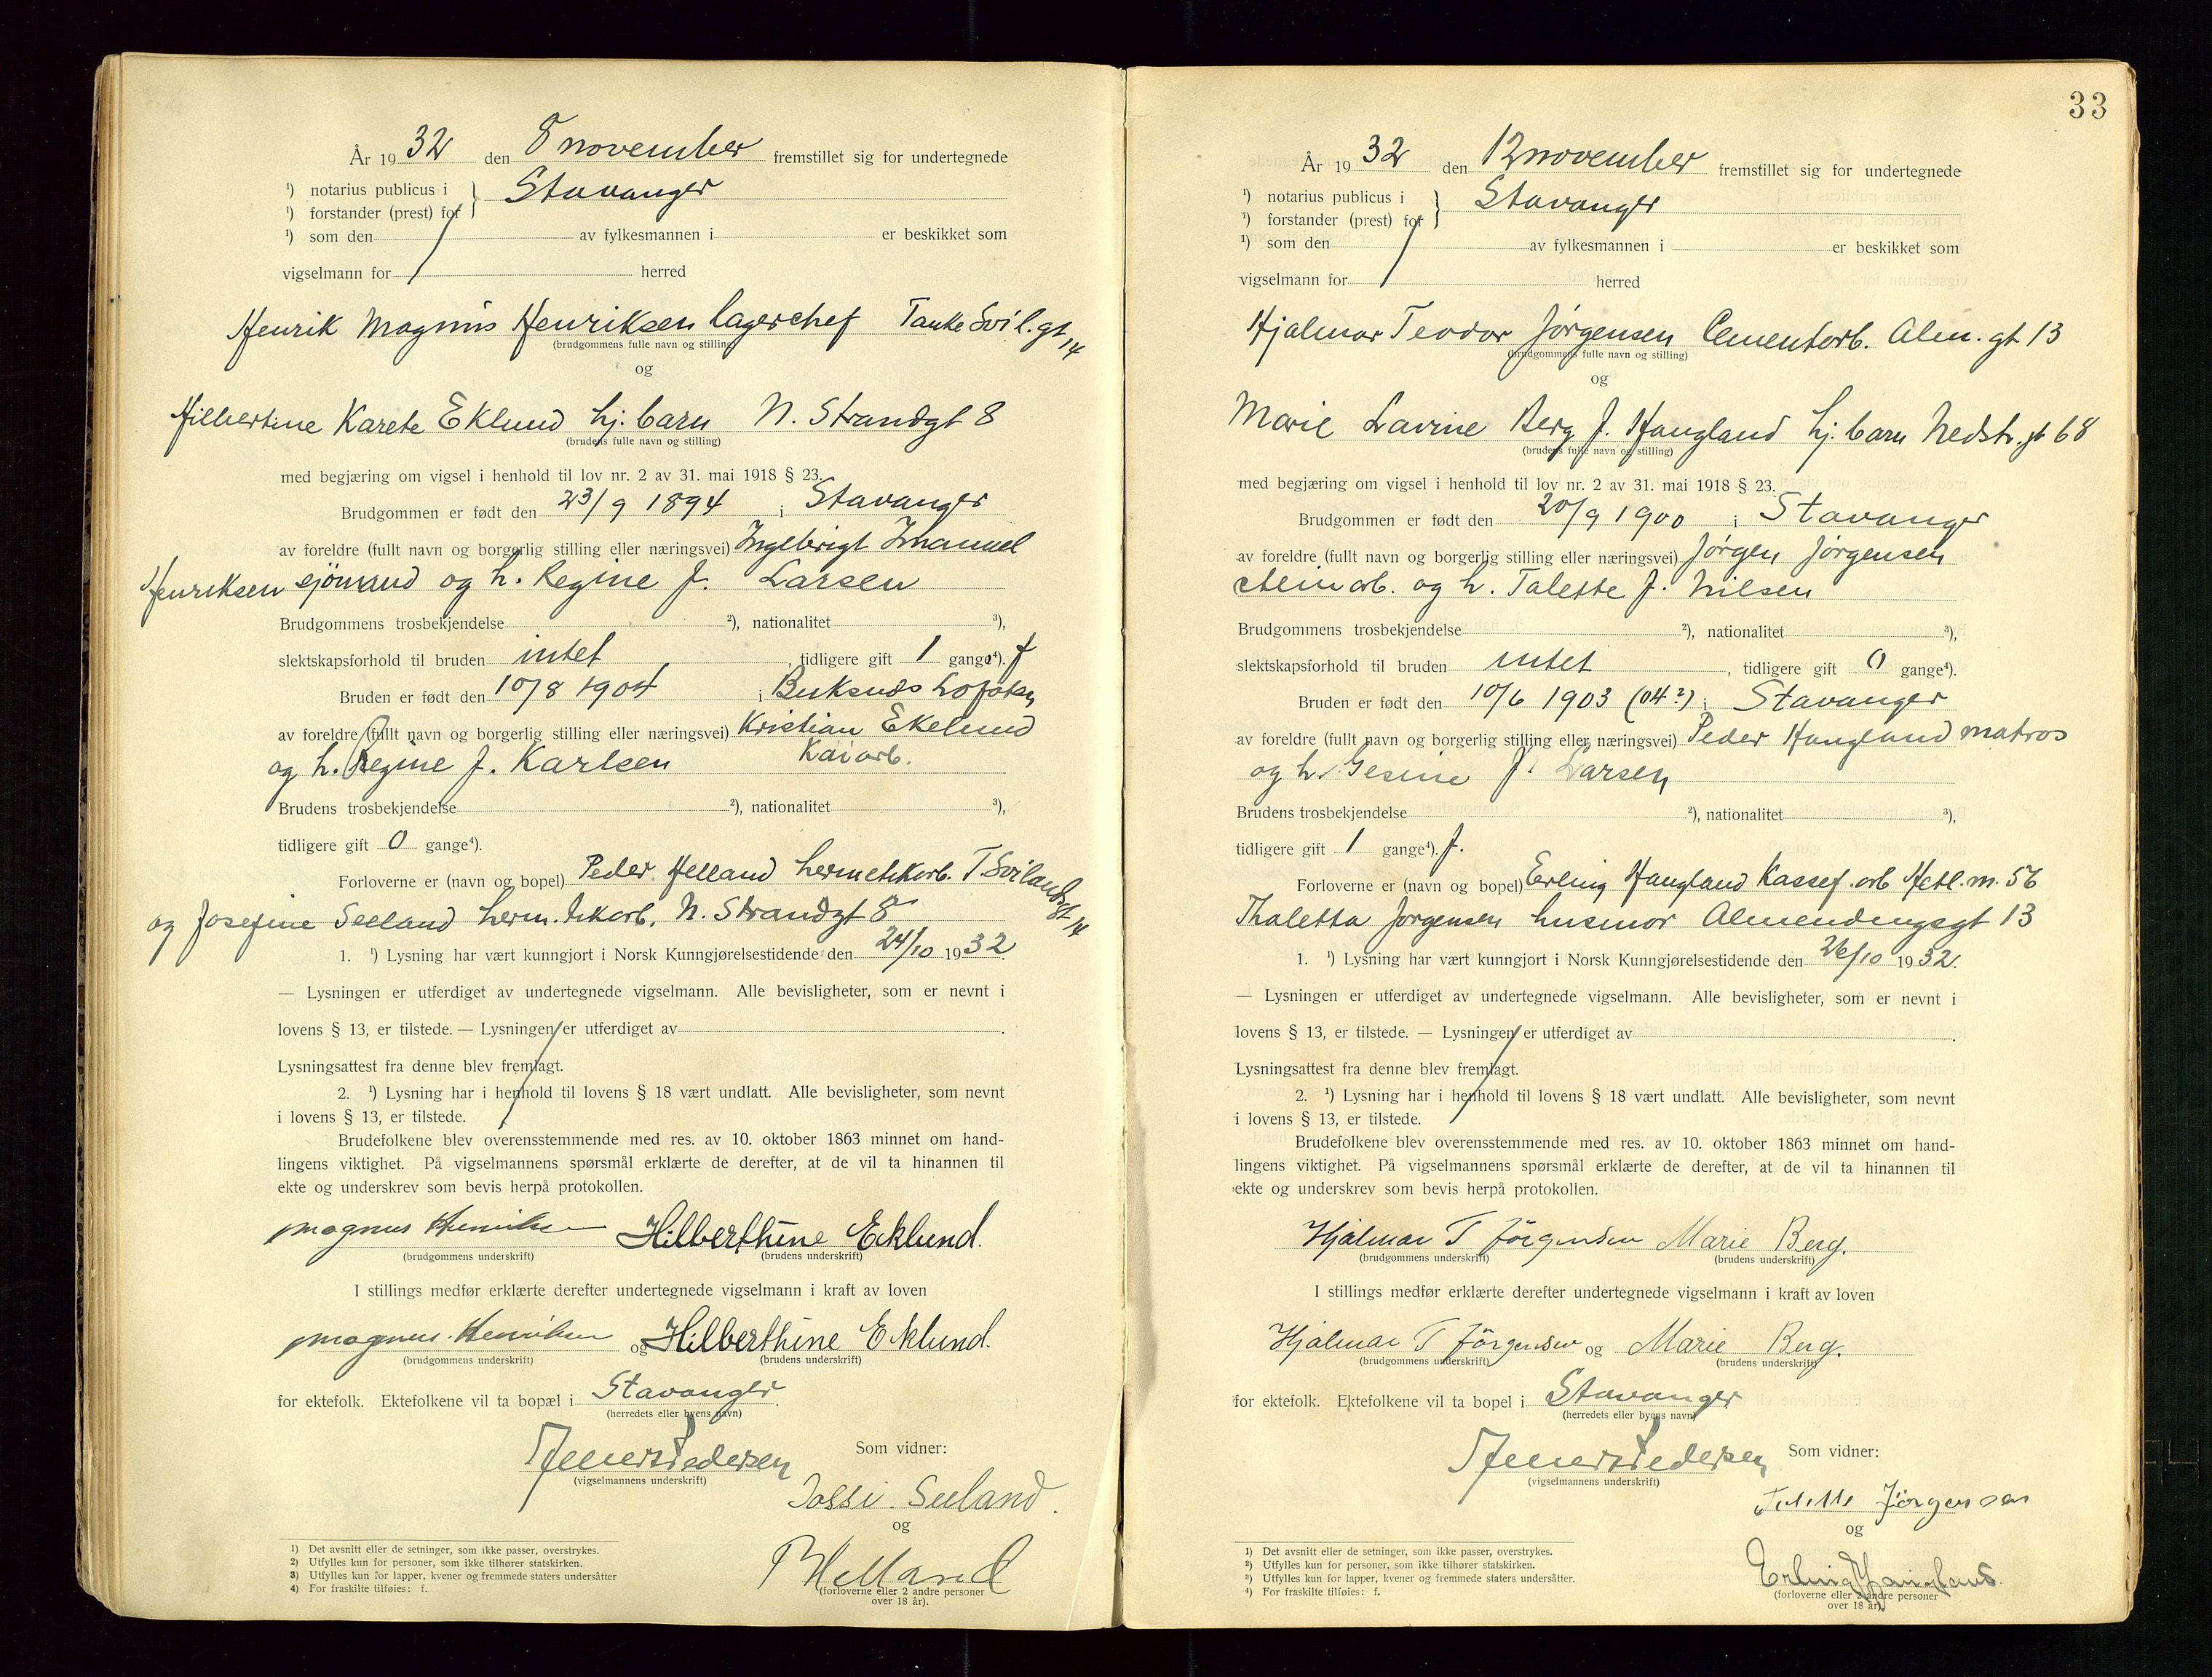 År 1932 den 8 november fremstillet sig for undertegnede
¹) notarius publicus i } Stavanger
¹) forstander (prest) for
¹) som den av fylkesmannen i er beskikket som
vigselmann for herred
Henrik Magnus Henriksen lagerchef Tanke Svil.gt 14
(brudgommens fulle navn og stilling)
og
Hilbertine Karete Eklund hj. barn N. Strandgt 8
(brudens fulle navn og stilling)
med begjæring om vigsel i henhold til lov nr. 2 av 31. mai 1918 § 23.
Brudgommen er født den 23/9 1894 i Stavanger
av foreldre (fullt navn og borgerlig stilling eller næringsvei) Ingebrigt Imanuel
Henriksen sjömand og h. Regine f. Larsen
Brudgommens trosbekjendelse ²), nationalitet ³),
slektskapsforhold til bruden intet, tidligere gift 1 gange⁴). f
Bruden er født den 10/8 1904 i Buksnes Lofoten
av foreldre (fullt navn og borgerlig stilling eller næringsvei) Kristian Ekelund
og h. Regine f. Karlsen Kaiarb.
Brudens trosbekjendelse ²), nationalitet ³),
tidligere gift 0 gange⁴).
Forloverne er (navn og bopel) Peder Helland hermetikkarb. T. Svilandsgt 14
og Josefine Seeland herm.tikarb. N. Strandgt 8
1. ¹) Lysning har vært kunngjort i Norsk Kunngjørelsestidende den 24/10 1932.
— Lysningen er utferdiget av undertegnede vigselmann. Alle bevisligheter, som er nevnt i
lovens § 13, er tilstede. — Lysningen er utferdiget av
Lysningsattest fra denne blev fremlagt.
2. ¹) Lysning har i henhold til lovens § 18 vært undlatt. Alle bevisligheter, som nevnt
i lovens § 13, er tilstede.
Brudefolkene blev overensstemmende med res. av 10. oktober 1863 minnet om hand-
lingens viktighet. På vigselmannens spørsmål erklærte de derefter, at de vil ta hinannen til
ekte og underskrev som bevis herpå protokollen.
Magnus Henriksen Hilberthine Ecklund.
(brudgommens underskrift) (brudens underskrift)
I stillings medfør erklærte derefter undertegnede vigselmann i kraft av loven
Magnus. Henriksen og Hilberthine Ecklund.
(brudgommens underskrift) (brudens underskrift)
for ektefolk. Ektefolkene vil ta bopæl i Stavanger.
(herredets eller byens navn)
Pedersen Som vidner:
(vigselmannens underskrift)
Jossi. Seeland.
og
P Helland
(forloverne eller 2 andre personer
over 18 år).
1) Det avsnitt eller de setninger, som ikke passer, overstrykes.
2) Utfylles kun for personer, som ikke tilhører statskirken.
3) Utfylles kun for lapper, kvener og fremmede staters undersåtter
4) For fraskilte tilføies: f.
33
År 1932 den 12 november fremstillet sig for undertegnede
¹) notarius publicus i } Stavanger
¹) forstander (prest) for
¹) som den av fylkesmannen i er beskikket som
vigselmann for herred
Hjalmar Teodor Jørgensen Cementarb. Alm. gt 13
(brudgommens fulle navn og stilling)
og
Marie Lavine Berg f. Haugland hj. barn Nedstr.gt 68
(brudens fulle navn og stilling)
med begjæring om vigsel i henhold til lov nr. 2 av 31. mai 1918 § 23.
Brudgommen er født den 20/9 1900 i Stavanger
av foreldre (fullt navn og borgerlig stilling eller næringsvei) Jørgen Jørgensen
arb. og h. Talette f. Nilsen
Brudgommens trosbekjendelse ²), nationalitet ³),
slektskapsforhold til bruden intet, tidligere gift 0 gange⁴).
Bruden er født den 10/6 1903 (04?) i Stavanger
av foreldre (fullt navn og borgerlig stilling eller næringsvei) Peder Haugland matros
og h. Gesine f. Larsen
Brudens trosbekjendelse ²), nationalitet ³),
tidligere gift 1 gange⁴). f.
Forloverne er (navn og bopel) Erling Haugland Kassef.arb Hetl.m. 56
Thaletta Jørgensen husmor Almendingsgt 13
1. ¹) Lysning har vært kunngjort i Norsk Kunngjørelsestidende den 26/10 1932.
— Lysningen er utferdiget av undertegnede vigselmann. Alle bevisligheter, som er nevnt i
lovens § 13, er tilstede. — Lysningen er utferdiget av
Lysningsattest fra denne blev fremlagt.
2. ¹) Lysning har i henhold til lovens § 18 vært undlatt. Alle bevisligheter, som nevnt
i lovens § 13, er tilstede.
Brudefolkene blev overensstemmende med res. av 10. oktober 1863 minnet om hand-
lingens viktighet. På vigselmannens spørsmål erklærte de derefter, at de vil ta hinannen til
ekte og underskrev som bevis herpå protokollen.
Hjalmar T Jörgensen Marie Berg.
(brudgommens underskrift) (brudens underskrift)
I stillings medfør erklærte derefter undertegnede vigselmann i kraft av loven
Hjalmar T Jörgensen og Marie Berg.
(brudgommens underskrift) (brudens underskrift)
for ektefolk. Ektefolkene vil ta bopel i Stavanger
(herredets eller byens navn)
Pedersen Som vidner:
(vigselmannens underskrift)
Jörgensen
og
Erling Haugland.
(forloverne eller 2 andre personer
over 18 år).
1) Det avsnitt eller de setninger, som ikke passer, overstrykes.
2) Utfylles kun for personer, som ikke tilhører statskirken.
3) Utfylles kun for lapper, kvener og fremmede staters undersåtter.
4) For fraskilte tilføies: f.